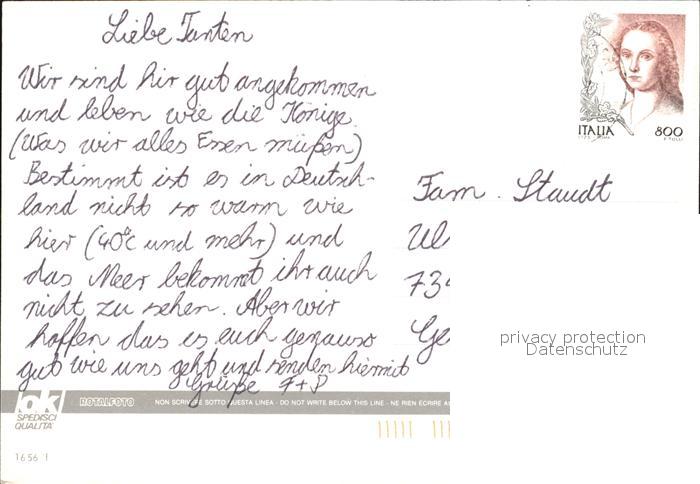 Liebe Tanten
Wir sind hir gut angekommen
und leben wie die Könige.
(Was wir alles Essen müßen)
Bestimmt ist es in Deutsch-
land nicht so warm wie
hier (40°C und mehr) und
das Meer bekommt ihr auch
nicht zu sehen. Aber wir
hoffen das es euch genauso
gut wie uns geht und senden hiermit
Grüße F+P
ITALIA 800
Fam. Staudt
Ul
734
Ge
privacy protection
Datenschutz
ok
SPEDISCI
QUALITÀ
ROTALFOTO
NON SCRIVERE SOTTO QUESTA LINEA - DO NOT WRITE BELOW THIS LINE - NE RIEN ÉCRIRE
1656 I